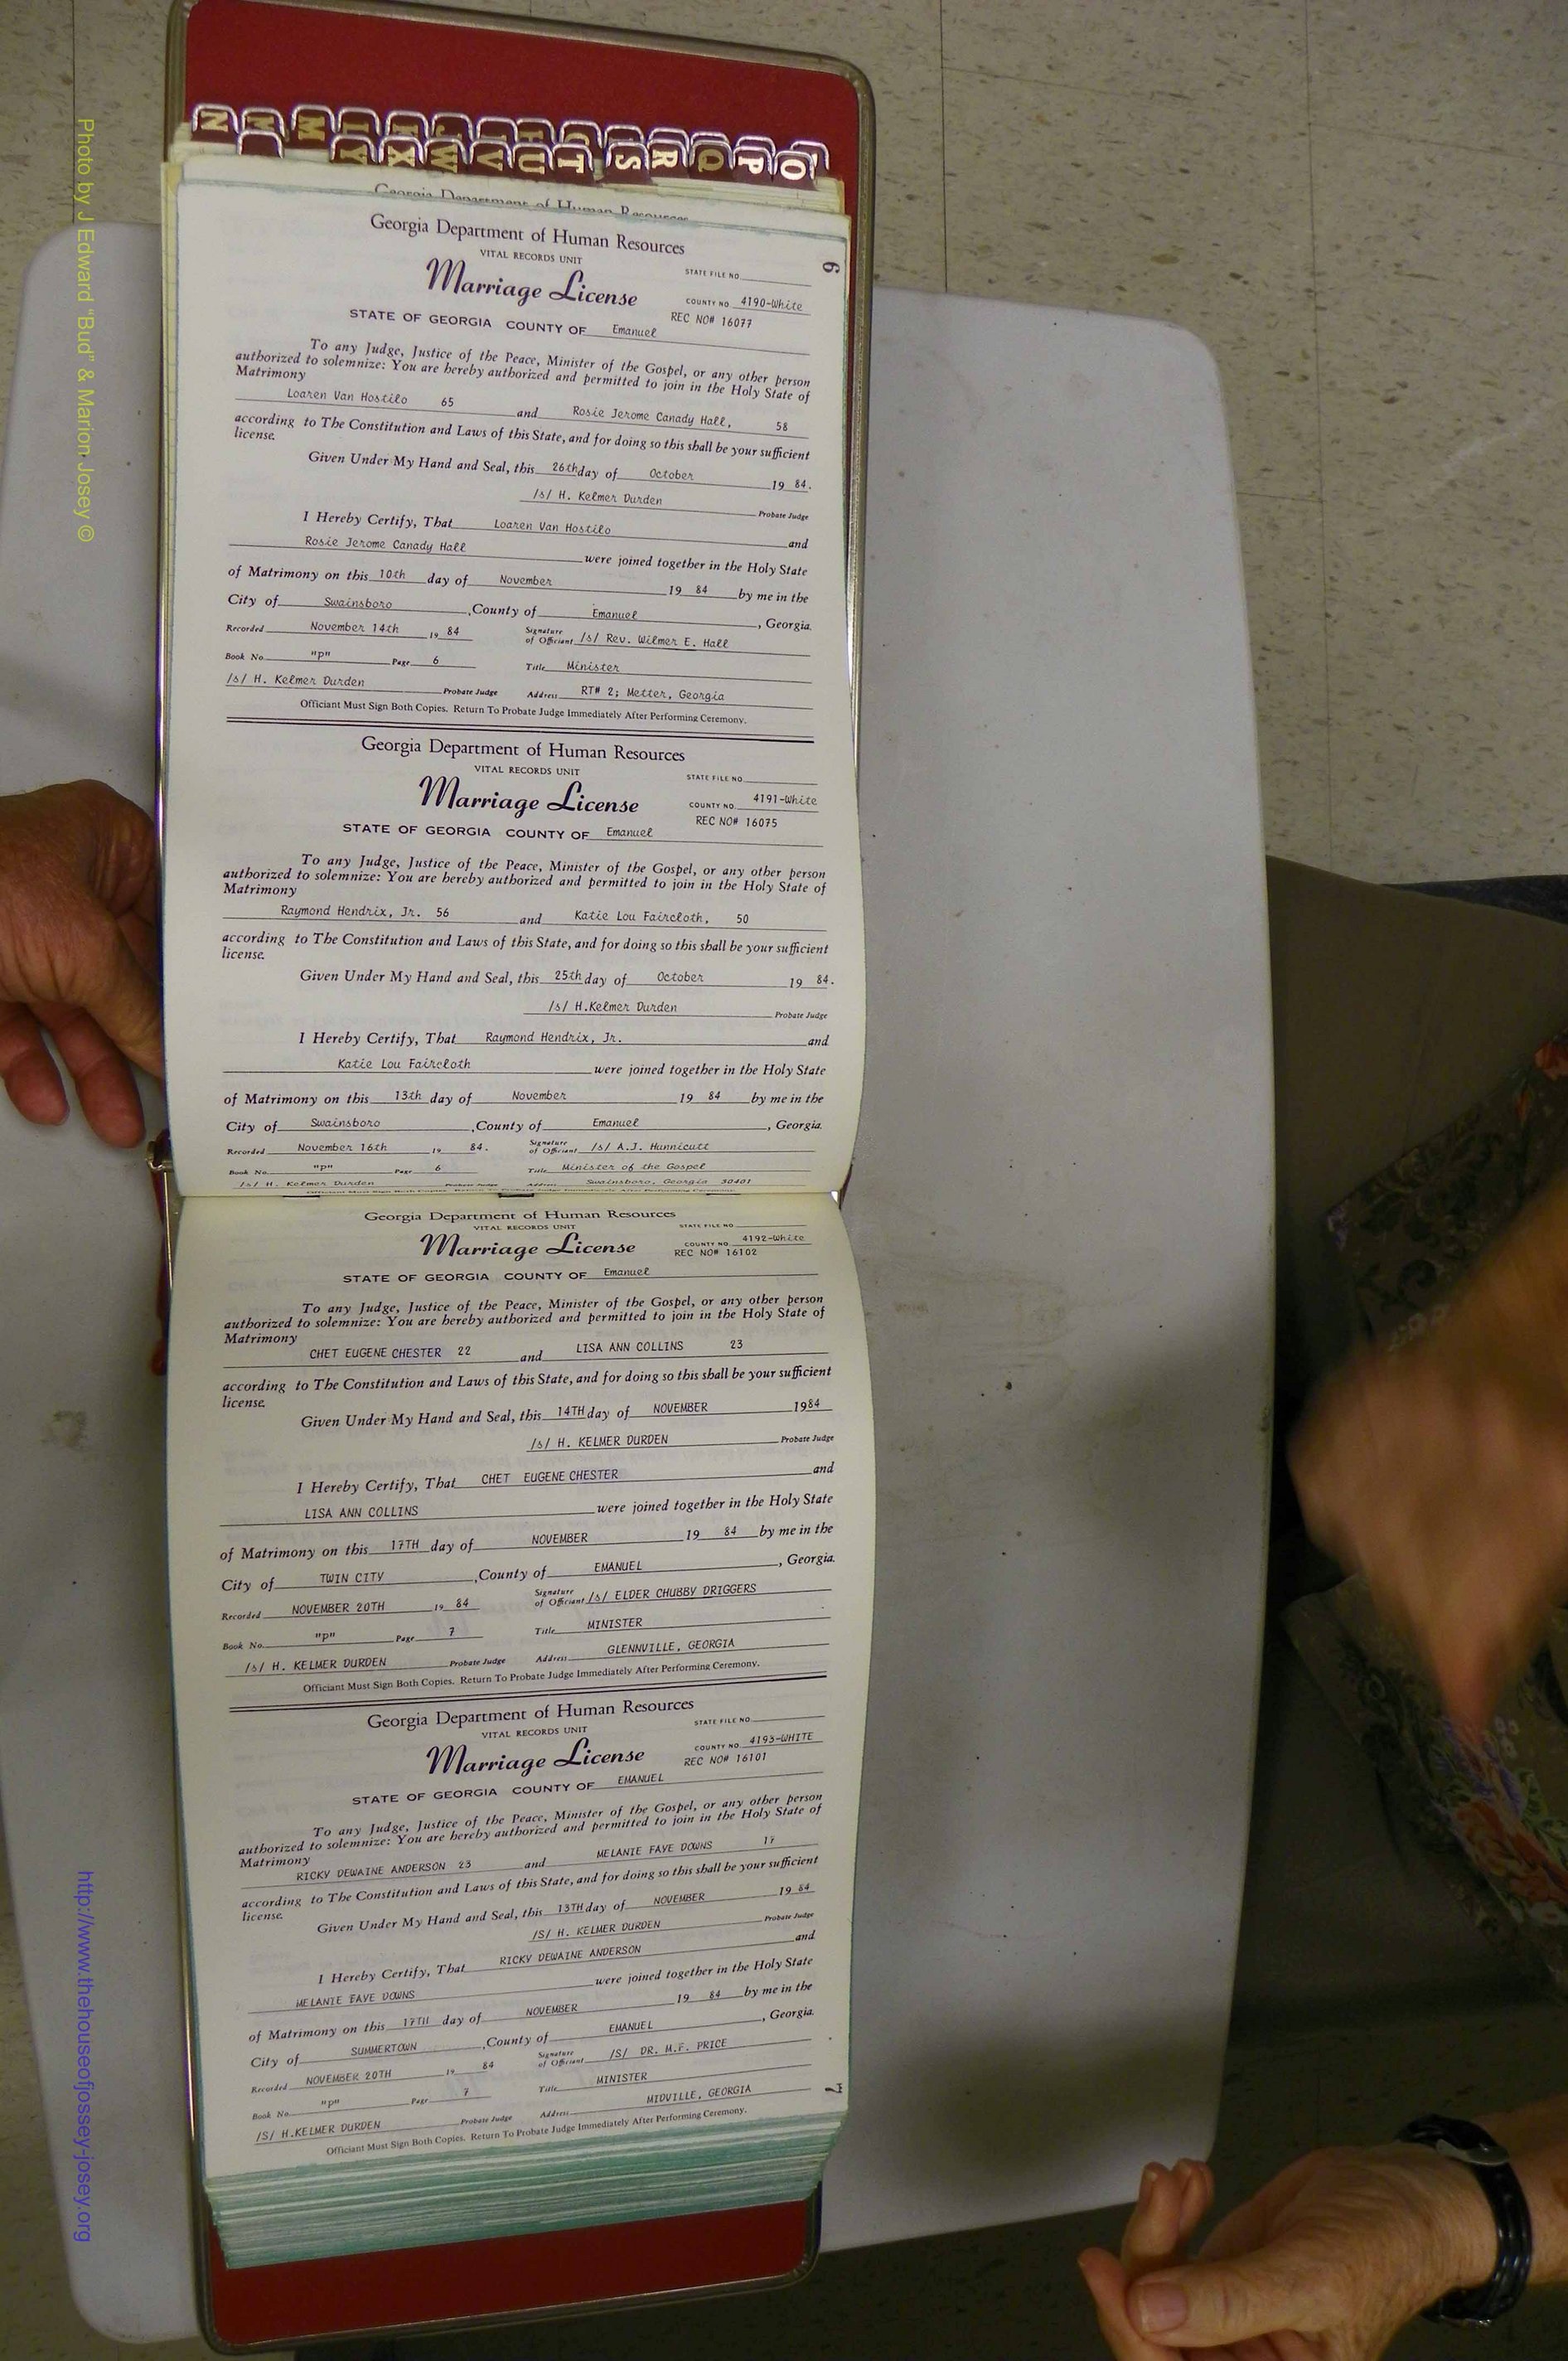 N M M L K J I H G
Y X W V U T S R Q P O
Georgia Department of Human Resources
Georgia Department of Human Resources
6
VITAL RECORDS UNIT
STATE FILE NO.
Marriage License
COUNTY NO. 4190-White
REC NO# 16077
STATE OF GEORGIA COUNTY OF Emanuel
To any Judge, Justice of the Peace, Minister of the Gospel, or any other person
authorized to solemnize: You are hereby authorized and permitted to join in the Holy State of
Matrimony
Loaren Van Hostilo 65 and Rosie Jerome Canady Hall, 58
according to The Constitution and Laws of this State, and for doing so this shall be your sufficient
license.
Given Under My Hand and Seal, this 26th day of October 19 84.
/s/ H. Kelmer Durden
Probate Judge
I Hereby Certify, That Loaren Van Hostilo and
Rosie Jerome Canady Hall were joined together in the Holy State
of Matrimony on this 10th day of November 19 84 by me in the
City of Swainsboro, County of Emanuel, Georgia.
Recorded November 14th 19 84 Signature of Officiant /s/ Rev. Wilmer E. Hall
Book No. "p" Page 6 Title Minister
/s/ H. Kelmer Durden Probate Judge Address RT# 2; Metter, Georgia
Officiant Must Sign Both Copies. Return To Probate Judge Immediately After Performing Ceremony.
Georgia Department of Human Resources
VITAL RECORDS UNIT
STATE FILE NO.
Marriage License
COUNTY NO. 4191-White
REC NO# 16075
STATE OF GEORGIA COUNTY OF Emanuel
To any Judge, Justice of the Peace, Minister of the Gospel, or any other person
authorized to solemnize: You are hereby authorized and permitted to join in the Holy State of
Matrimony
Raymond Hendrix, Jr. 56 and Katie Lou Faircloth, 50
according to The Constitution and Laws of this State, and for doing so this shall be your sufficient
license.
Given Under My Hand and Seal, this 25th day of October 19 84.
/s/ H.Kelmer Durden
Probate Judge
I Hereby Certify, That Raymond Hendrix, Jr. and
Katie Lou Faircloth were joined together in the Holy State
of Matrimony on this 13th day of November 19 84 by me in the
City of Swainsboro, County of Emanuel, Georgia.
Recorded November 16th 19 84. Signature of Officiant /s/ A.J. Hunnicutt
Book No. "p" Page 6 Title Minister of the Gospel
/s/ H. Kelmer Durden Probate Judge Address Swainsboro, Georgia 30401
Officiant Must Sign Both Copies. Return To Probate Judge Immediately After Performing Ceremony.
Georgia Department of Human Resources
VITAL RECORDS UNIT
STATE FILE NO.
Marriage License
COUNTY NO. 4192-White
REC NO# 16102
STATE OF GEORGIA COUNTY OF Emanuel
To any Judge, Justice of the Peace, Minister of the Gospel, or any other person
authorized to solemnize: You are hereby authorized and permitted to join in the Holy State of
Matrimony
CHET EUGENE CHESTER 22 and LISA ANN COLLINS 23
according to The Constitution and Laws of this State, and for doing so this shall be your sufficient
license.
Given Under My Hand and Seal, this 14TH day of NOVEMBER 1984
/s/ H. KELMER DURDEN
Probate Judge
I Hereby Certify, That CHET EUGENE CHESTER and
LISA ANN COLLINS were joined together in the Holy State
of Matrimony on this 17TH day of NOVEMBER 19 84 by me in the
City of TWIN CITY, County of EMANUEL, Georgia.
Recorded NOVEMBER 20TH 19 84 Signature of Officiant /s/ ELDER CHUBBY DRIGGERS
Book No. "p" Page 7 Title MINISTER
/s/ H. KELMER DURDEN Probate Judge Address GLENNVILLE, GEORGIA
Officiant Must Sign Both Copies. Return To Probate Judge Immediately After Performing Ceremony.
Georgia Department of Human Resources
VITAL RECORDS UNIT
STATE FILE NO.
Marriage License
COUNTY NO. 4193-WHITE
REC NO# 16101
STATE OF GEORGIA COUNTY OF EMANUEL
To any Judge, Justice of the Peace, Minister of the Gospel, or any other person
authorized to solemnize: You are hereby authorized and permitted to join in the Holy State of
Matrimony
RICKY DEWAINE ANDERSON 23 and MELANIE FAYE DOWNS 17
according to The Constitution and Laws of this State, and for doing so this shall be your sufficient
license.
Given Under My Hand and Seal, this 13TH day of NOVEMBER 19 84
/S/ H. KELMER DURDEN
Probate Judge
I Hereby Certify, That RICKY DEWAINE ANDERSON and
MELANIE FAYE DOWNS were joined together in the Holy State
of Matrimony on this 17TH day of NOVEMBER 19 84 by me in the
City of SUMMERTOWN, County of EMANUEL, Georgia.
Recorded NOVEMBER 20TH 19 84 Signature of Officiant /S/ DR. M.F. PRICE
Book No. "p" Page 7 Title MINISTER
/S/ H.KELMER DURDEN Probate Judge Address MIDVILLE, GEORGIA
Officiant Must Sign Both Copies. Return To Probate Judge Immediately After Performing Ceremony.
7
Photo by J Edward "Bud" & Marion Josey ©
http://www.thehouseofjossey-josey.org